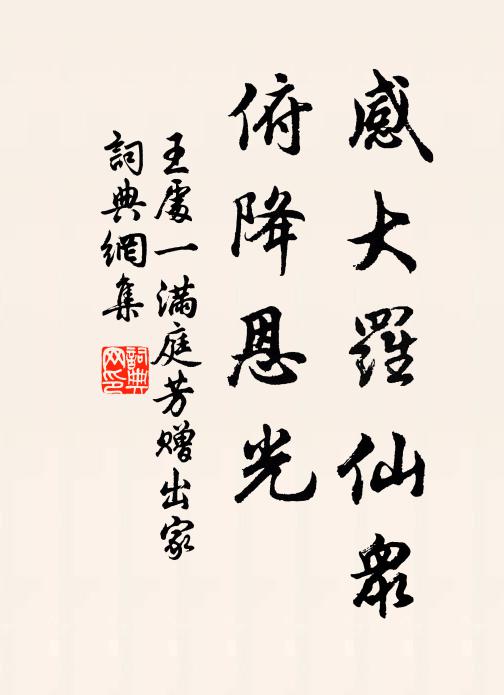 感大羅仙眾
俯降恩光
王處一滿庭芳贈出家
詞典網集
詞典
网印